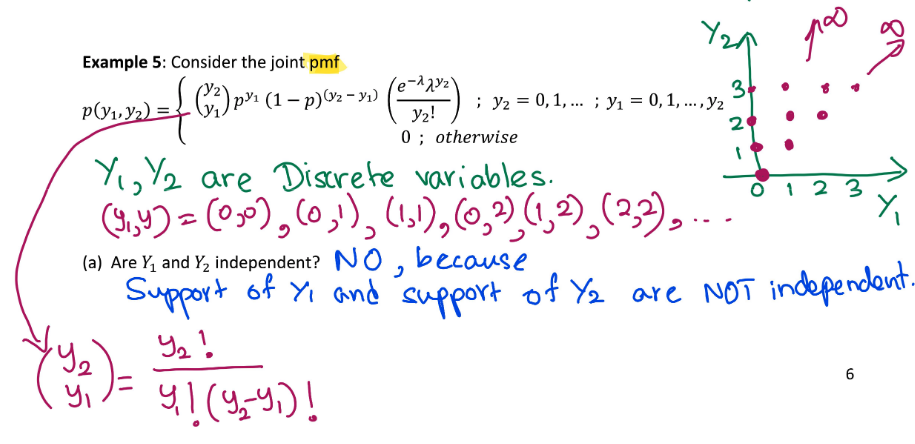 Example 5: Consider the joint pmf
p(y₁,y₂) = { (y₂ y₁) p^y₁ (1 − p)^(y₂ − y₁) (e^−λ λ^y₂ / y₂!) ; y₂ = 0, 1, ... ; y₁ = 0, 1, ..., y₂
0 ; otherwise
Y₂ ∞ ∞
3
2
1
0 1 2 3
Y₁
Y₁, Y₂ are Discrete variables.
(y₁,y) = (0,0), (0,1), (1,1), (0,2) (1,2), (2,2), ...
(a) Are Y₁ and Y₂ independent? NO, because
Support of Y₁ and support of Y₂ are NOT independent.
(y₂ y₁) = y₂! / y₁! (y₂-y₁)!
6